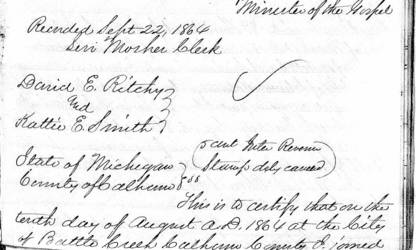 Minister of the Gospel
Recorded Sept 22, 1864
Levi Mosher Clerk
David E. Ritchy
And
Kattie E. Smith
5 cent Inter Revenue
Stamp duly canceled
State of Michigan
County of Calhoun } ss
This is to certify that on the
tenth day of August A.D. 1864 at the City
of Battle Creek Calhoun County I joined